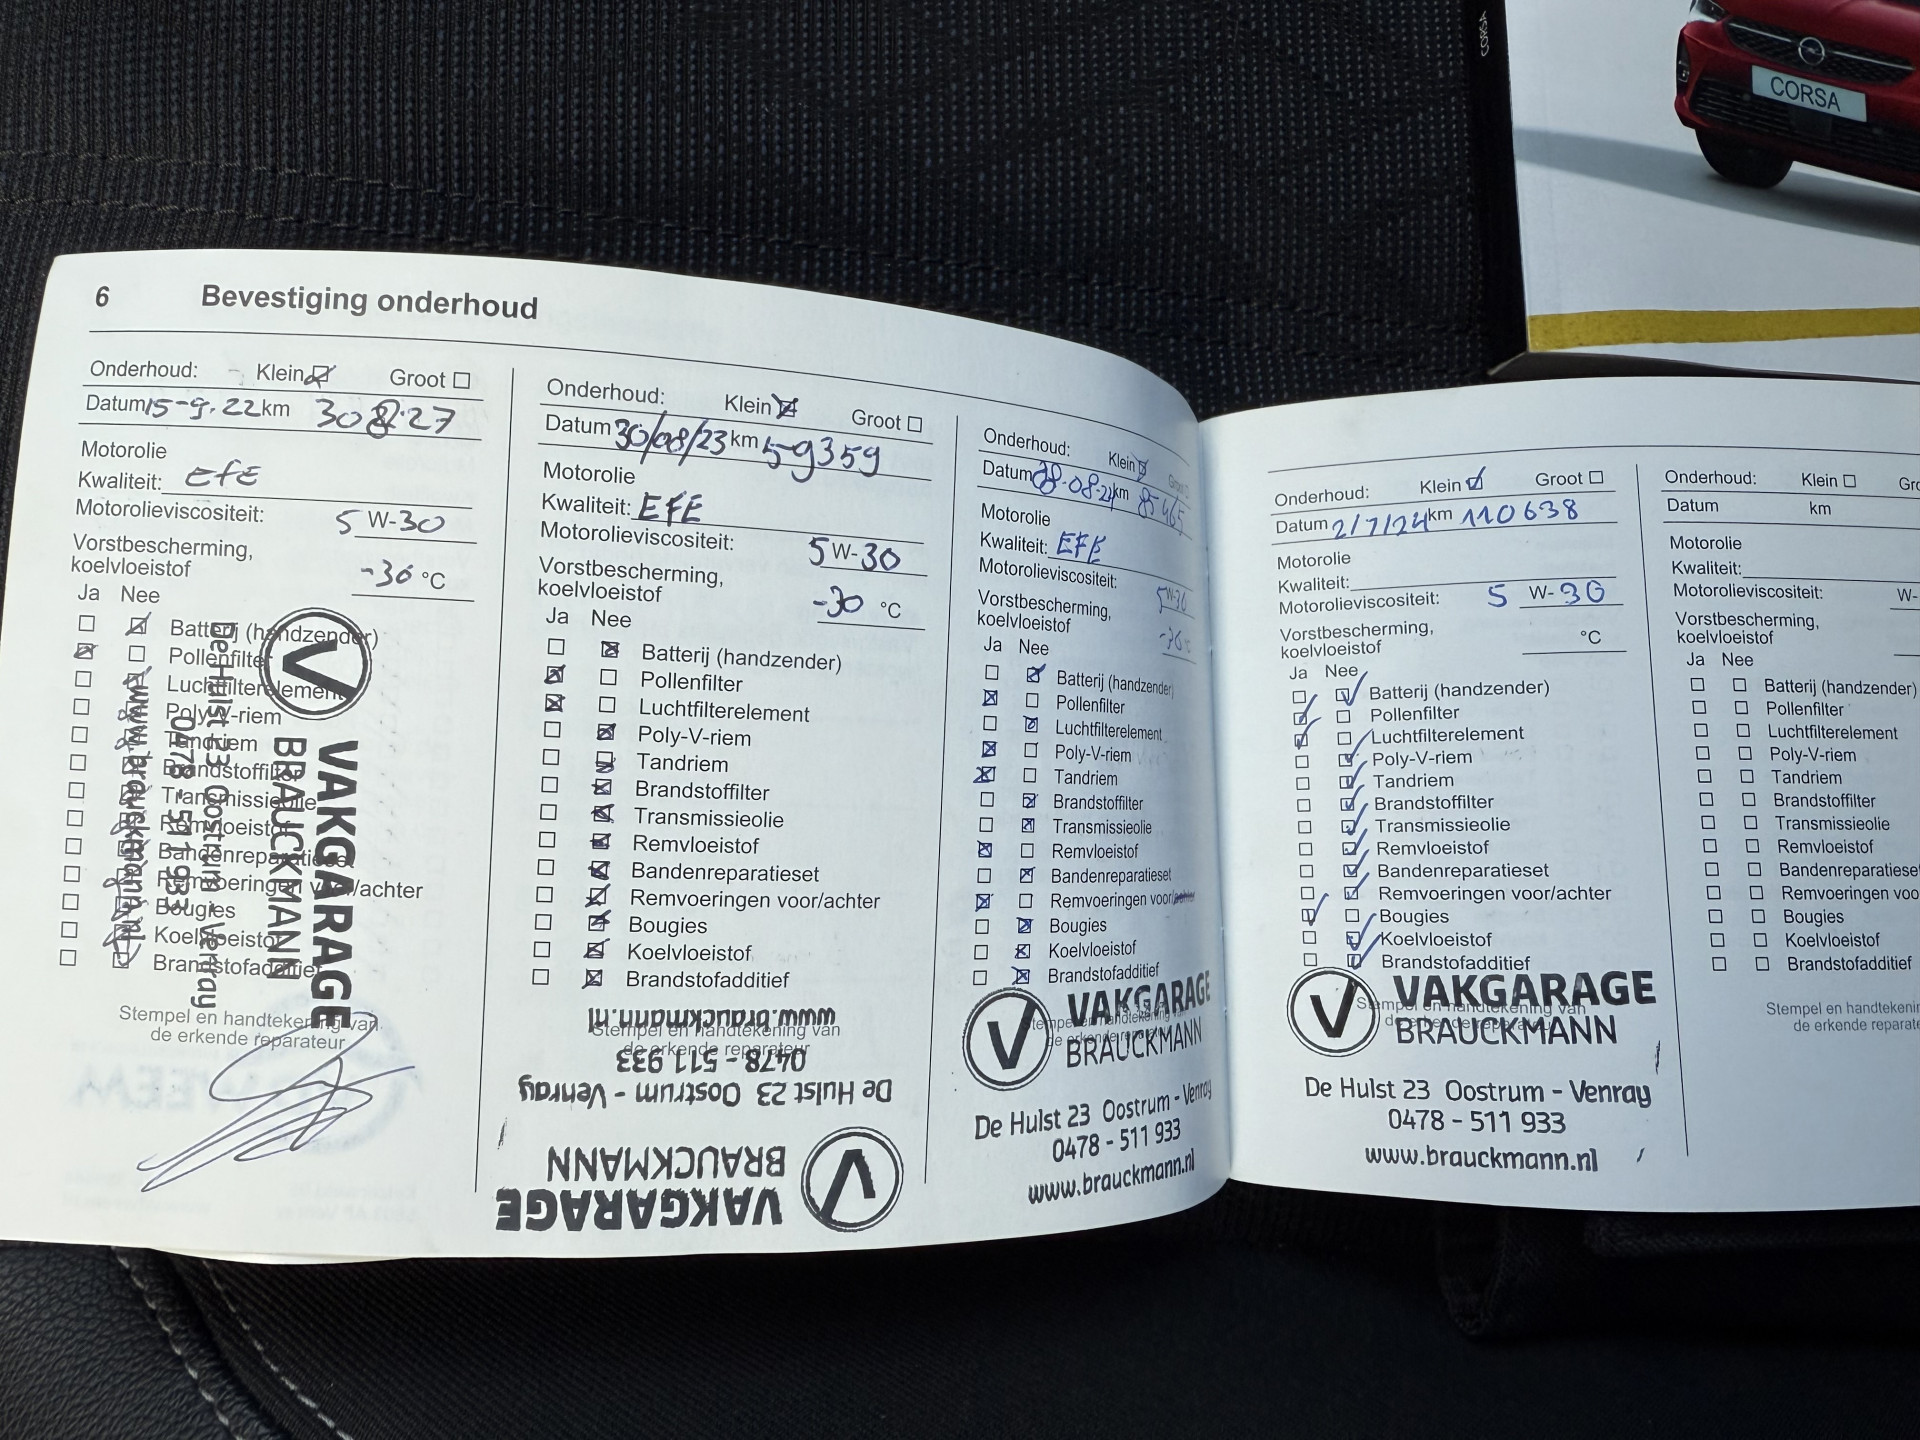 CORSA
CORSA
6 Bevestiging onderhoud
Onderhoud: Klein Groot
Datum 15-9.22 km 30827
Motorolie
Kwaliteit: EFE
Motorolieviscositeit: 5 W-30
Vorstbescherming,
koelvloeistof -30 °C
Ja Nee
Batterij (handzender)
Pollenfilter
Luchtfilterelement
Poly-V-riem
Tandriem
Brandstoffilter
Transmissieolie
Remvloeistof
Bandenreparatieset
Remvoeringen voor/achter
Bougies
Koelvloeistof
Brandstofadditief
VAKGARAGE
BRAUCKMANN
De Hulst 23 Oostrum - Venray
0478 - 511 933
www.brauckmann.nl
Stempel en handtekening van
de erkende reparateur
Onderhoud: Klein Groot
Datum 30/08/23 km 59359
Motorolie
Kwaliteit: EFE
Motorolieviscositeit: 5 W-30
Vorstbescherming,
koelvloeistof -30 °C
Ja Nee
Batterij (handzender)
Pollenfilter
Luchtfilterelement
Poly-V-riem
Tandriem
Brandstoffilter
Transmissieolie
Remvloeistof
Bandenreparatieset
Remvoeringen voor/achter
Bougies
Koelvloeistof
Brandstofadditief
Stempel en handtekening van
de erkende reparateur
VAKGARAGE
BRAUCKMANN
De Hulst 23 Oostrum - Venray
0478 - 511 933
www.brauckmann.nl
Onderhoud: Klein Groot
Datum 08-08-24 km 85465
Motorolie
Kwaliteit: EFE
Motorolieviscositeit: 5 W-30
Vorstbescherming,
koelvloeistof -30 °C
Ja Nee
Batterij (handzender)
Pollenfilter
Luchtfilterelement
Poly-V-riem
Tandriem
Brandstoffilter
Transmissieolie
Remvloeistof
Bandenreparatieset
Remvoeringen voor/achter
Bougies
Koelvloeistof
Brandstofadditief
Stempel en handtekening van
de erkende reparateur
VAKGARAGE
BRAUCKMANN
De Hulst 23 Oostrum - Venray
0478 - 511 933
www.brauckmann.nl
Onderhoud: Klein Groot
Datum 2/7/24 km 110638
Motorolie
Kwaliteit:
Motorolieviscositeit: 5 W-30
Vorstbescherming,
koelvloeistof °C
Ja Nee
Batterij (handzender)
Pollenfilter
Luchtfilterelement
Poly-V-riem
Tandriem
Brandstoffilter
Transmissieolie
Remvloeistof
Bandenreparatieset
Remvoeringen voor/achter
Bougies
Koelvloeistof
Brandstofadditief
Stempel en handtekening van
de erkende reparateur
VAKGARAGE
BRAUCKMANN
De Hulst 23 Oostrum - Venray
0478 - 511 933
www.brauckmann.nl
Onderhoud: Klein Gro
Datum km
Motorolie
Kwaliteit:
Motorolieviscositeit: W-
Vorstbescherming,
koelvloeistof
Ja Nee
Batterij (handzender)
Pollenfilter
Luchtfilterelement
Poly-V-riem
Tandriem
Brandstoffilter
Transmissieolie
Remvloeistof
Bandenreparatieset
Remvoeringen voo
Bougies
Koelvloeistof
Brandstofadditief
Stempel en handtekenin
de erkende reparate